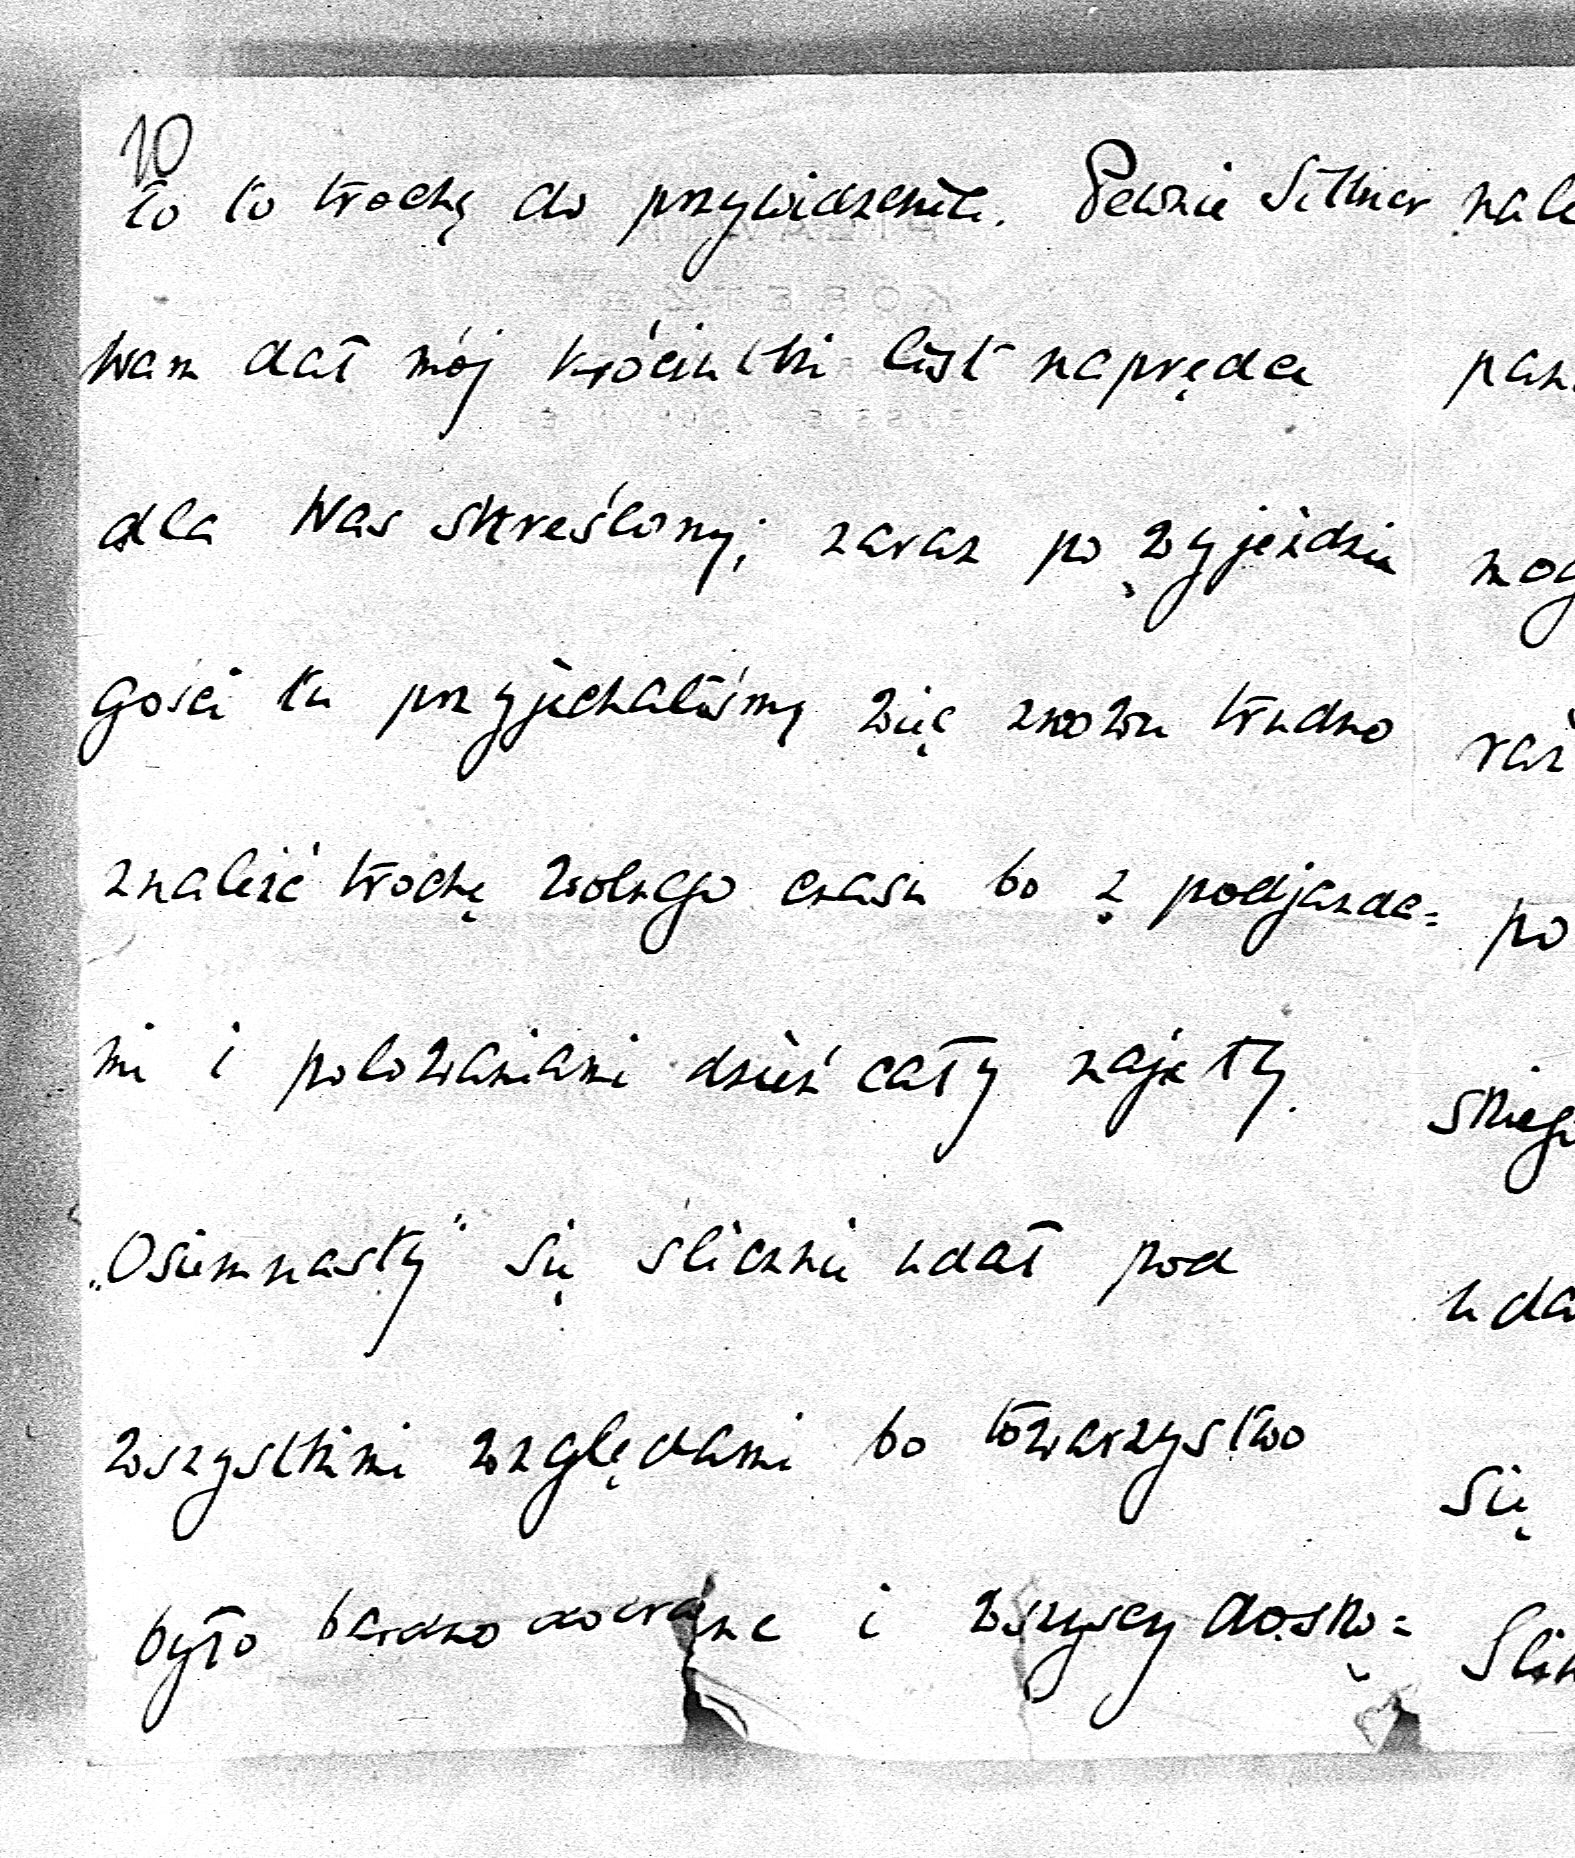 10
to to trochę do przywidzenia. Pewnie Sittner
Wam dał mój króciutki list naprędce
dla Was skreślony; zaraz po wyjeździe
gości tu przyjechaliśmy więc znowu trudno
znaleźć trochę wolnego czasu bo z podjazda=
mi i polowaniami dzień cały zajęty.
„Osiemnasty" się ślicznie udał pod
wszystkimi względami bo towarzystwo
było bardzo dobrane i wszyscy dosko=
po
uda
się